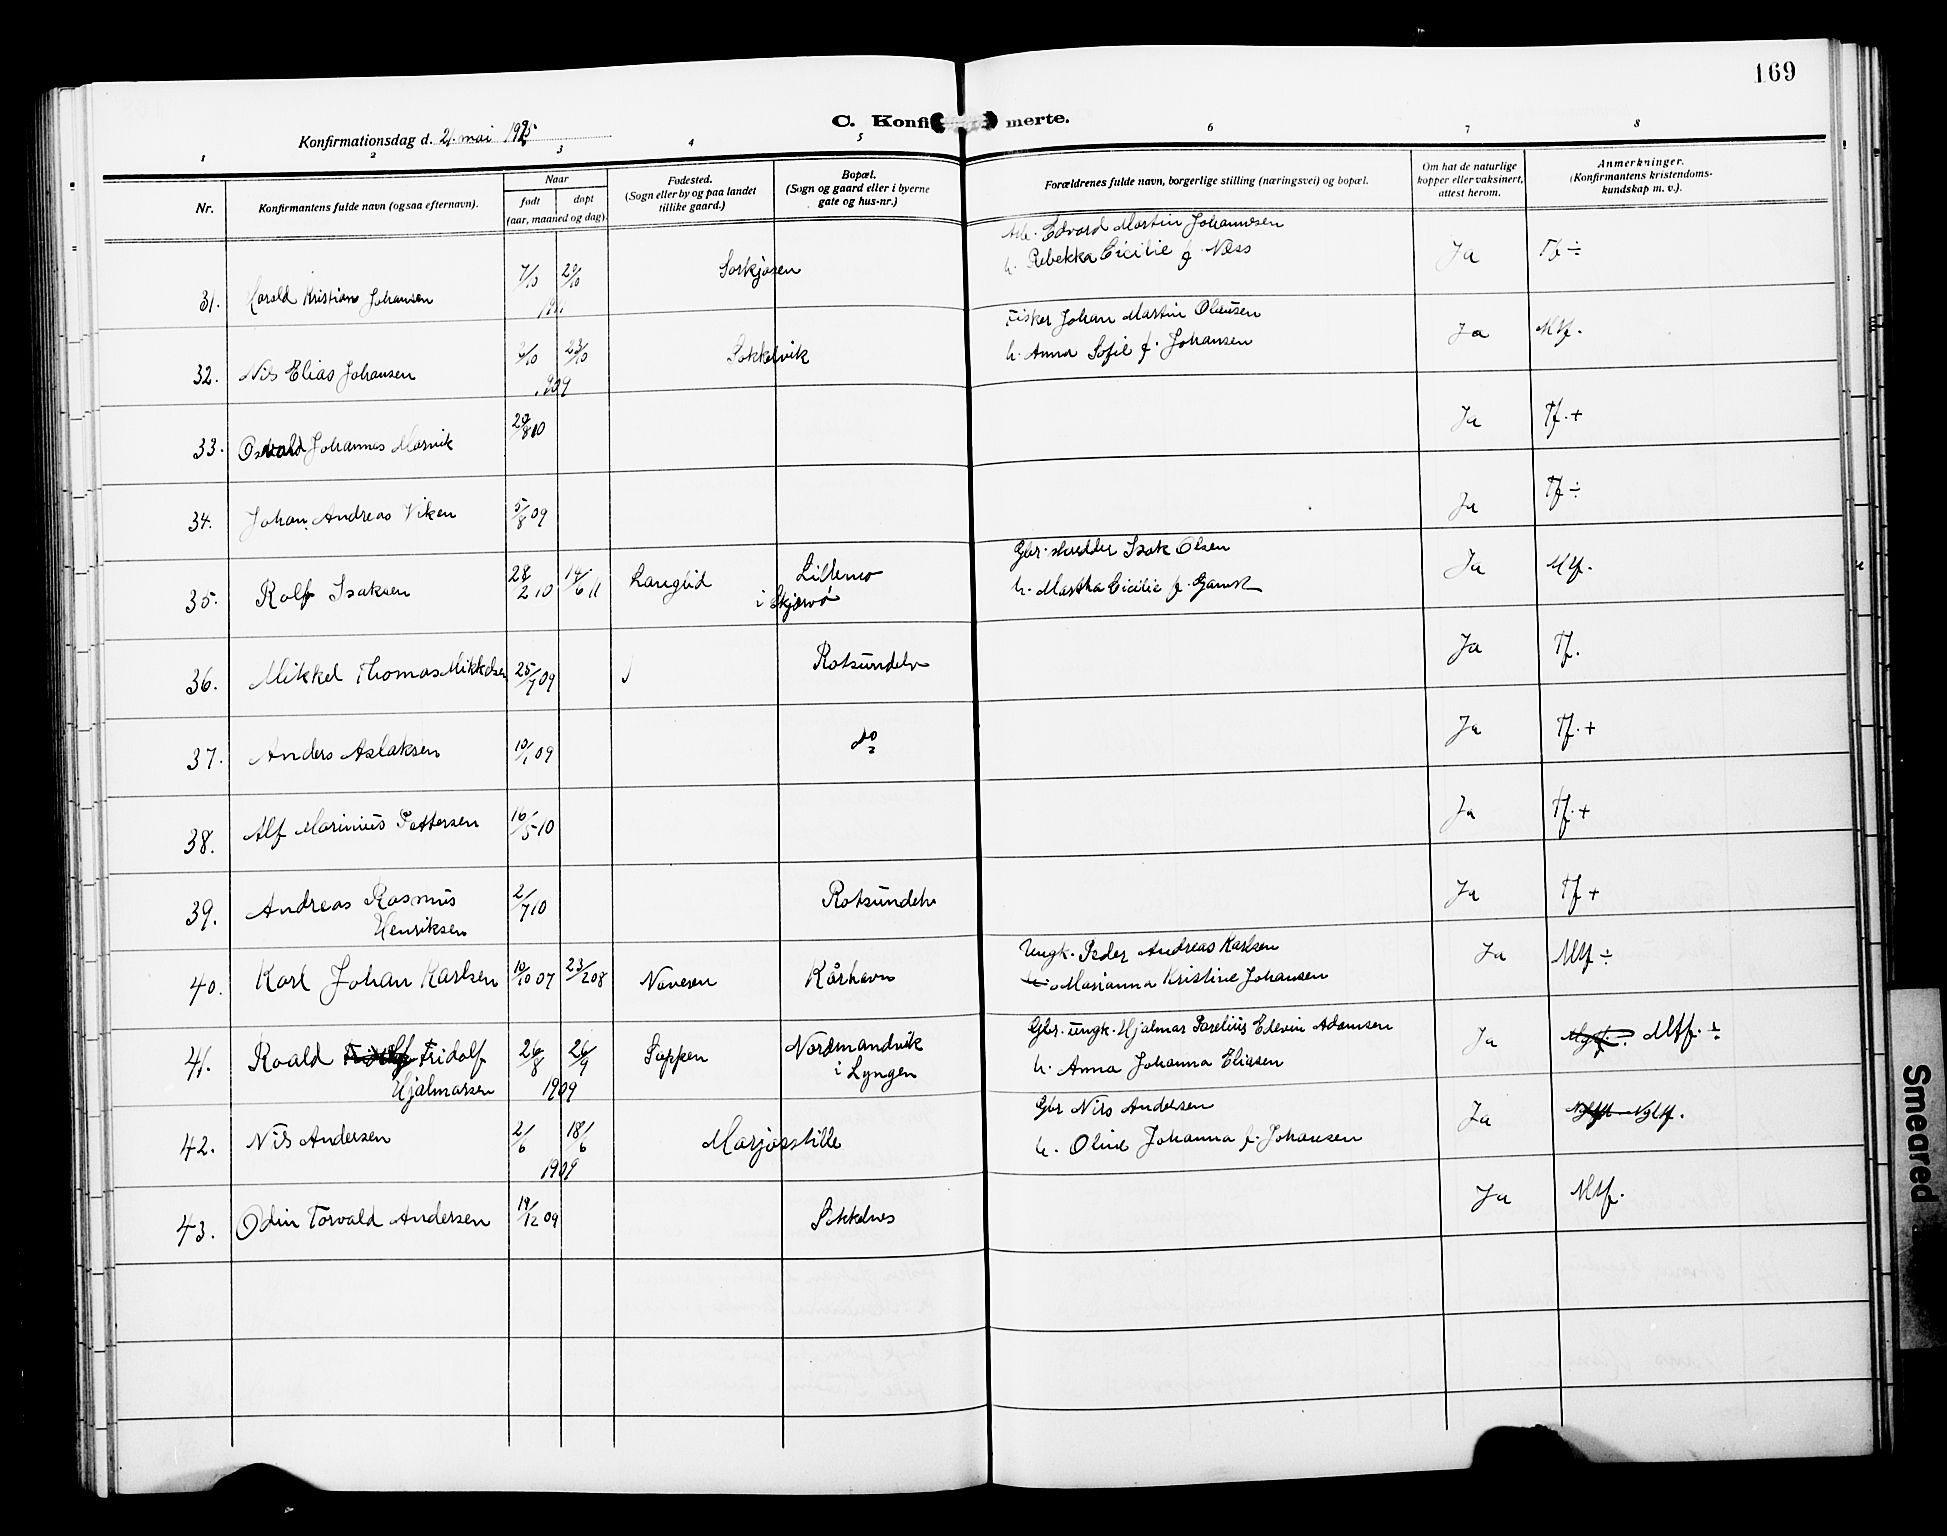 169
C. Konfi merte.
Konfirmationsdag d. 21. mai 1925
1 2 3 4 5 6 7 8
Nr.
Konfirmantens fulde navn (ogsaa efternavn).
Naar
født døpt
(aar, maaned og dag).
Fødested.
(Sogn eller by og paa landet
tillike gaard.)
Bopæl.
(Sogn og gaard eller i byerne
gate og hus-nr.)
Forældrenes fulde navn, borgerlige stilling (næringsvei) og bopæl.
Om hat de naturlige
kopper eller vaksinert,
attest herom.
Anmerkninger.
(Konfirmantens kristendoms-
kundskap m. v.).
31. Harald Kristian Johansen 7/10 29/10 Sørkjosen
Arb. Edvard Martin Johannesen
h. Rebekka Cicilie f. Næss
Ja Tf ÷
32. Nils Elias Johansen 2/10 23/10 1909 Sokkelvik
Fisker Johan Martin Olaüsen
h. Anna Sofie f. Johansen
Ja Mtf.
33. Osvald Johannes Marvik 29/8 10 Ja Tf. +
34. Johan Andreas Viken 5/8 09 Ja Tf ÷
35. Rolf Isaksen 28/2 10 14/6 11 Langlid Lillemo
i Skjervø
Gbr. skredder Isak Olsen
h. Martha Cicilie f.
Ja Mtf.
36. Mikkel Thomas Mikkelsen 25/7 09 Rotsundelv Ja Tf.
37. Anders Aslaksen 10/1 09 do Ja Tf. +
38. Alf Marinius Pettersen 16/5 10 Ja Tf. +
39. Andreas Rasmus
Henriksen 2/7 10 Rotsundelv Ja Tf +
40. Karl Johan Karlsen 10/10 07 23/2 08 Naveren Kårhavn
Ungk. Peder Andreas Karlsen
Marianna Kristine Johansen
Ja Mtf ÷
41. Roald Fridolf
Hjalmarsen 26/8 26/9 1909 Sappen Nordmandvik
i Lyngen
Gbr. ungk. Hjalmar Parelius Edevin Adamsen
h. Anna Johanna Eliasen
Ja Mtf. ÷
42. Nils Andersen 2/6 18/6 1909 Marjosstille
Gbr Nils Andersen
h. Oline Johanna f. Johansen
Ja Ngtf.
43. Odin Torvald Andersen 19/12 09 Sokkelnes Ja Mtf.
Smeared